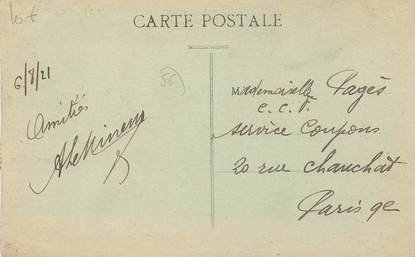 CARTE POSTALE
6/8/21
56
Amitiés
Mademoiselle Pagès
C.C.F.
service Coupons
20 rue Chauchat
Paris 9e